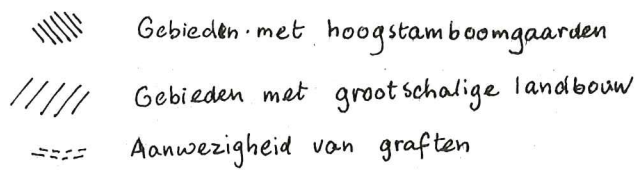 Gebieden met hoogstamboomgaarden
Gebieden met grootschalige landbouw
Aanwezigheid van graften